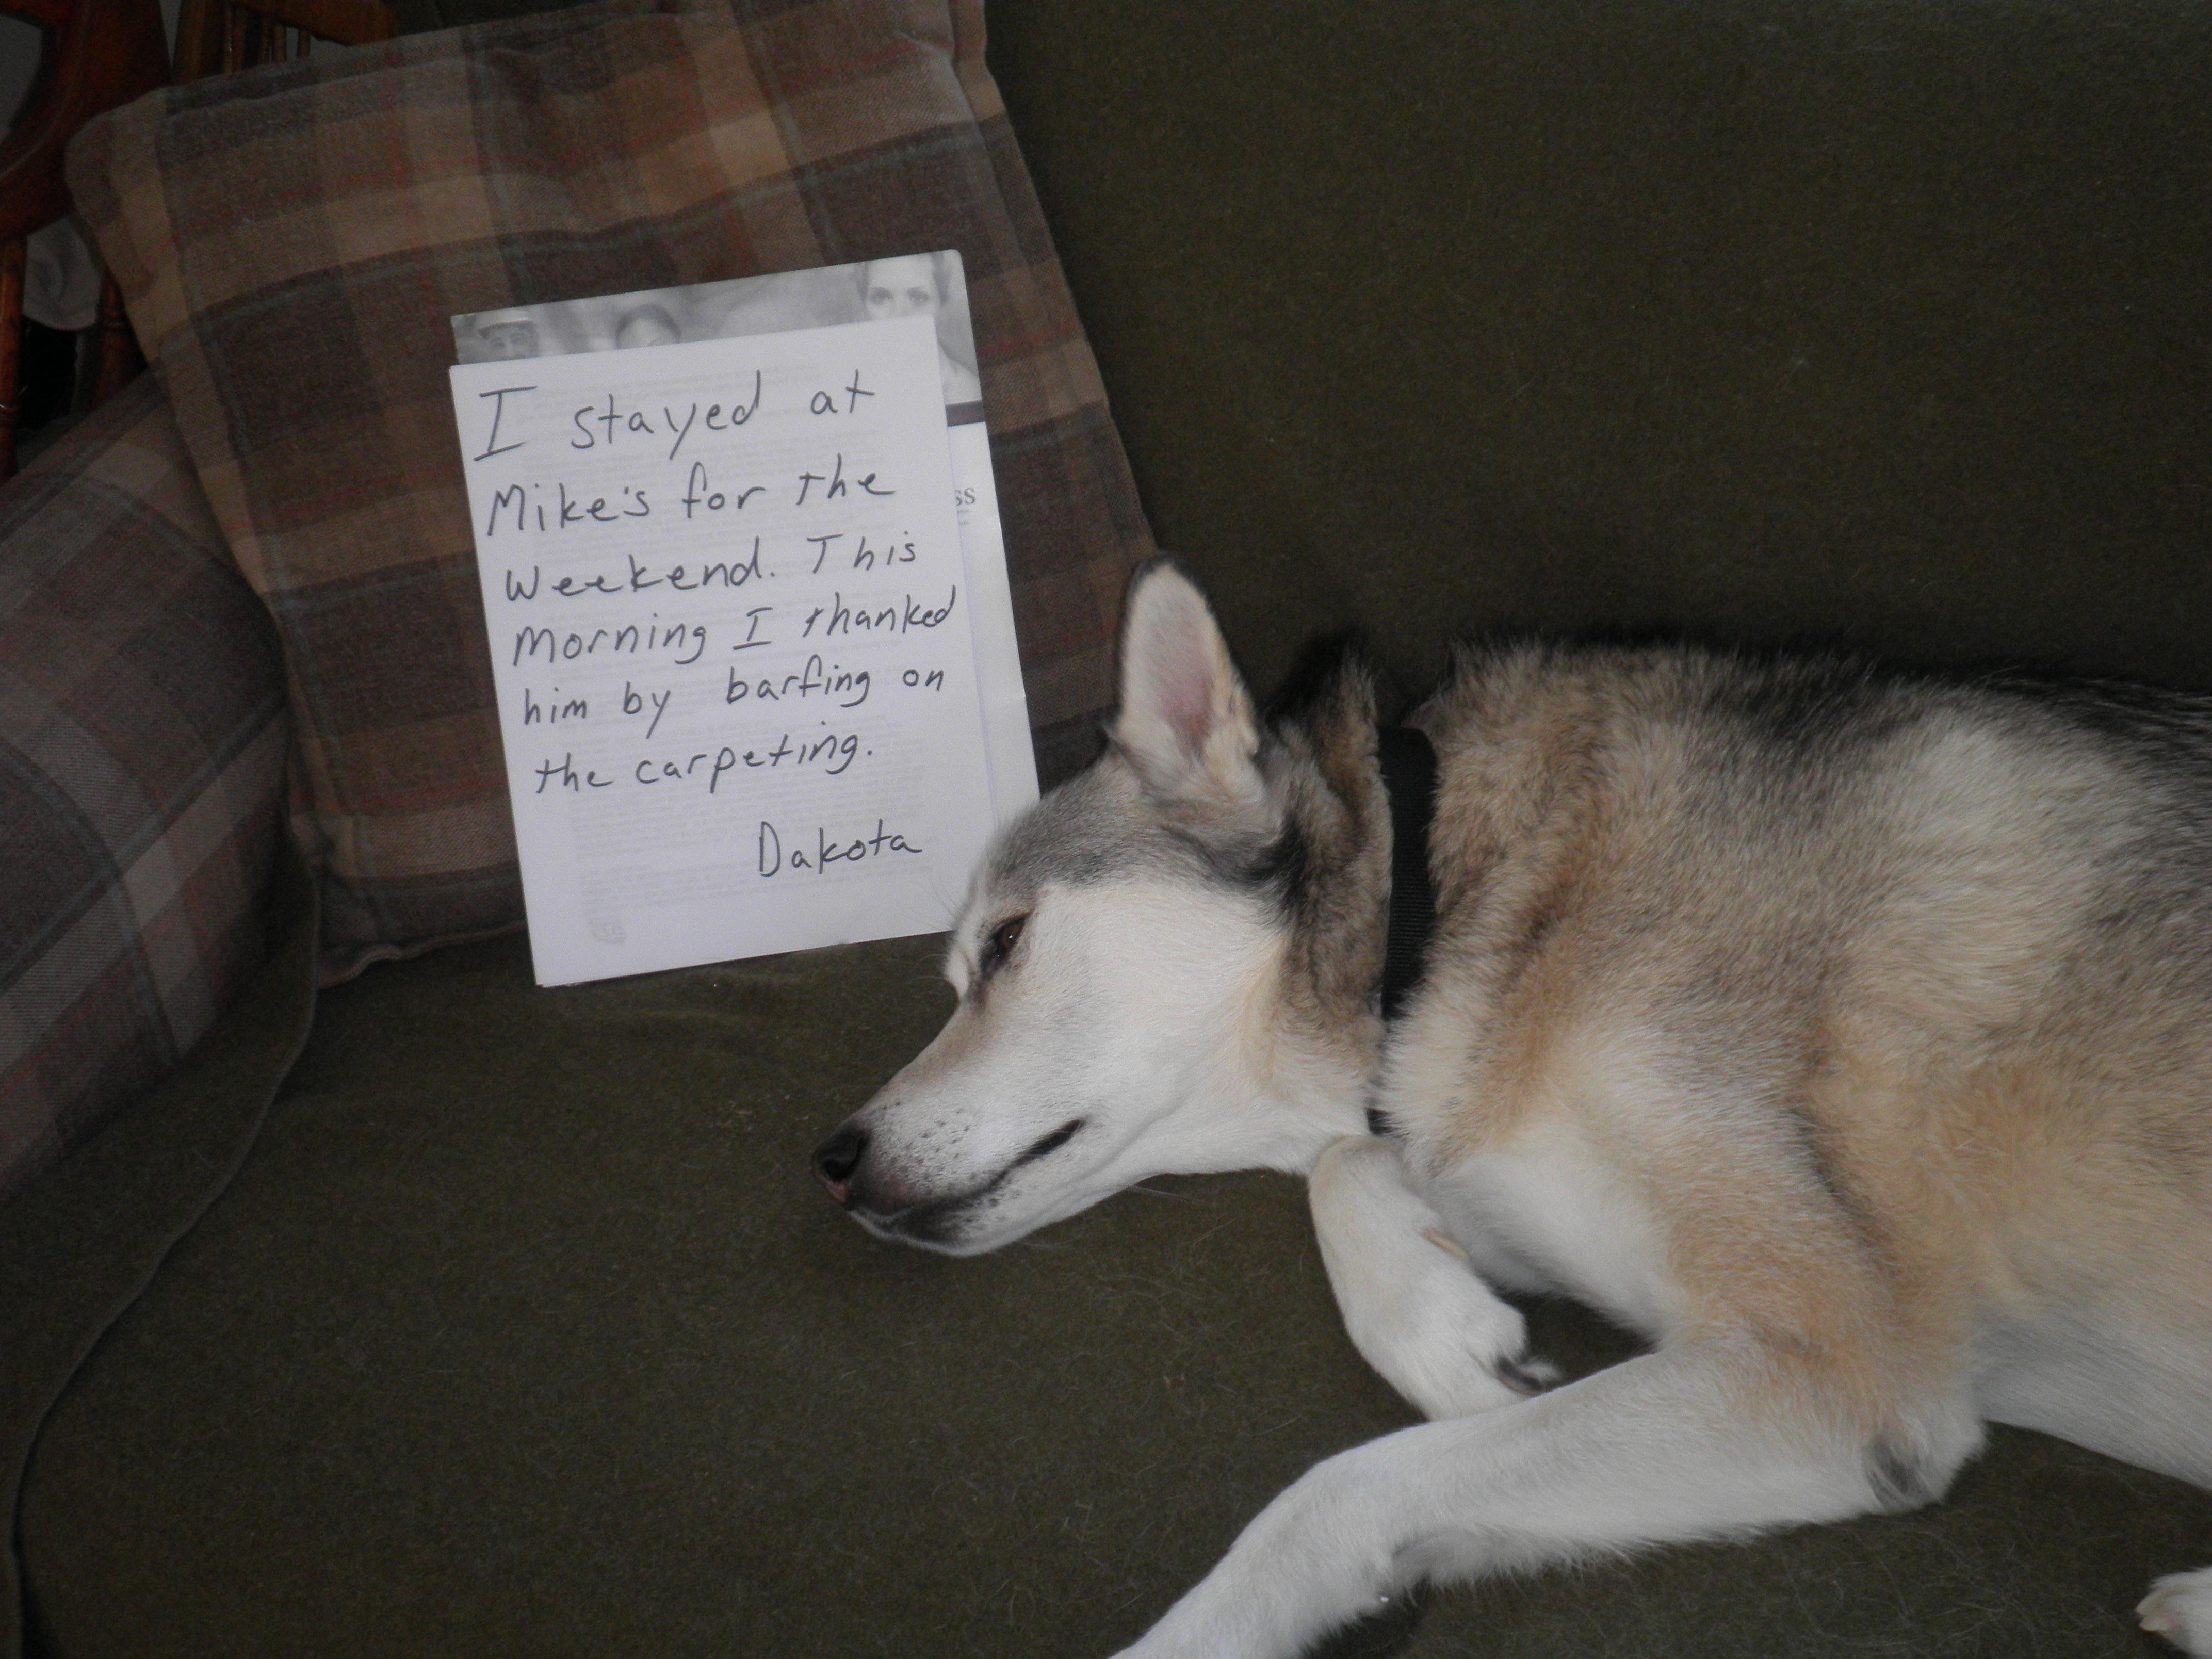 I stayed at
Mike's for the
weekend. This
morning I thanked
him by barfing on
the carpeting.
Dakota
ss